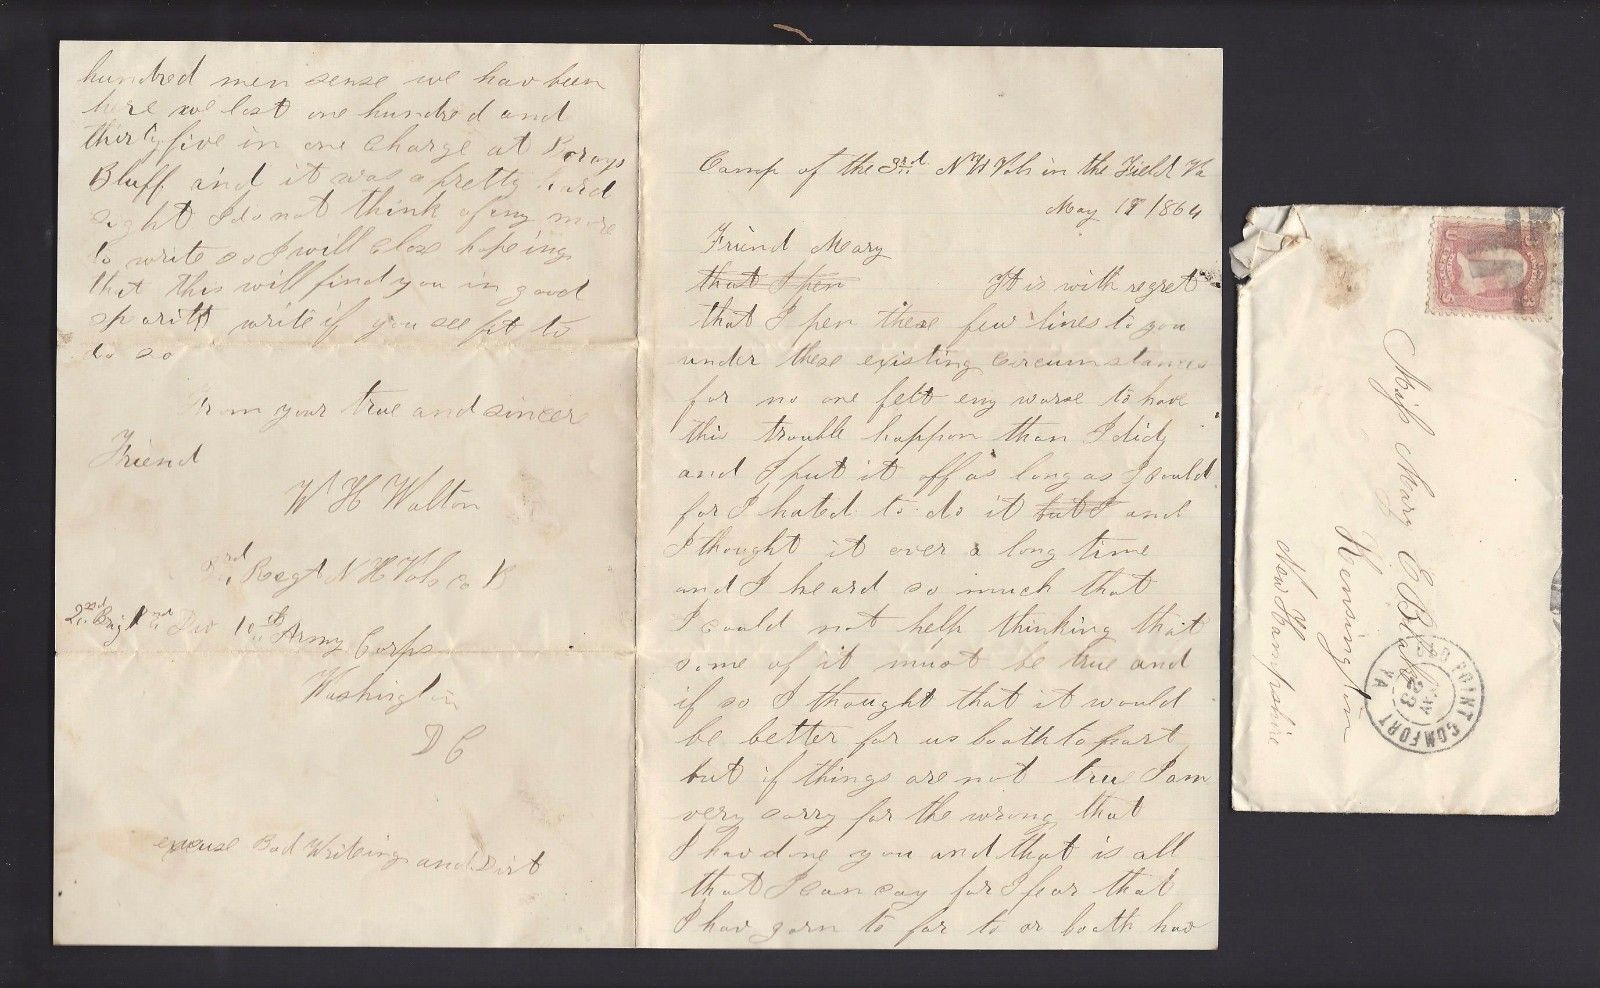 Camp of the 3rd N H Vols in the Field Va
May 1864
Friend Mary
that I pen It is with regret
that I pen these few lines to you
under these existing circumstances
for no one felt eny worse to have
this trouble happon than I did
and I put it off as long as I could
for I hated to do it but I and
I thought it over a long time
and I heard so much that
I could not help thinking that
some of it must be true and
if so I thought that it would
be better for us booth to part
but if things are not true I am
very sorry for the wrong that
I hav done you and that is all
that I can say for I fear that
I hav gorn to far to or booth hav
hundred men sense we hav been
here we lost one hundred and
thirty five in one charge at
Bluff and it was a pretty hard
sight I do not think of eny more
to write so I will close hopeing
that this will find you in good
sparitts write if you see fit to
to so
From your true and sinceer
Friend
W H Walton
3rd Regt N H Vols Co B
2nd Brig Div 10th Army Corps
Washington
D C
excuse Bad Writeing and Dirt
Miss Mary E Blake
Kensington
New Hampshire
POINT COMFORT
MAY
23
VA